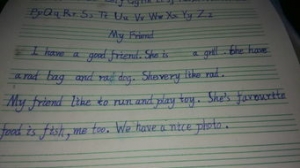 Qq Rr Ss Tt Uu Vv Ww Xx Yy Zz
My Friend
I have a good friend. She is a gril. She have
a rad bag and rad dog. She very like rad.
My friend like to run and play toy. She's favourite
food is fish, me too. We have a nice photo.